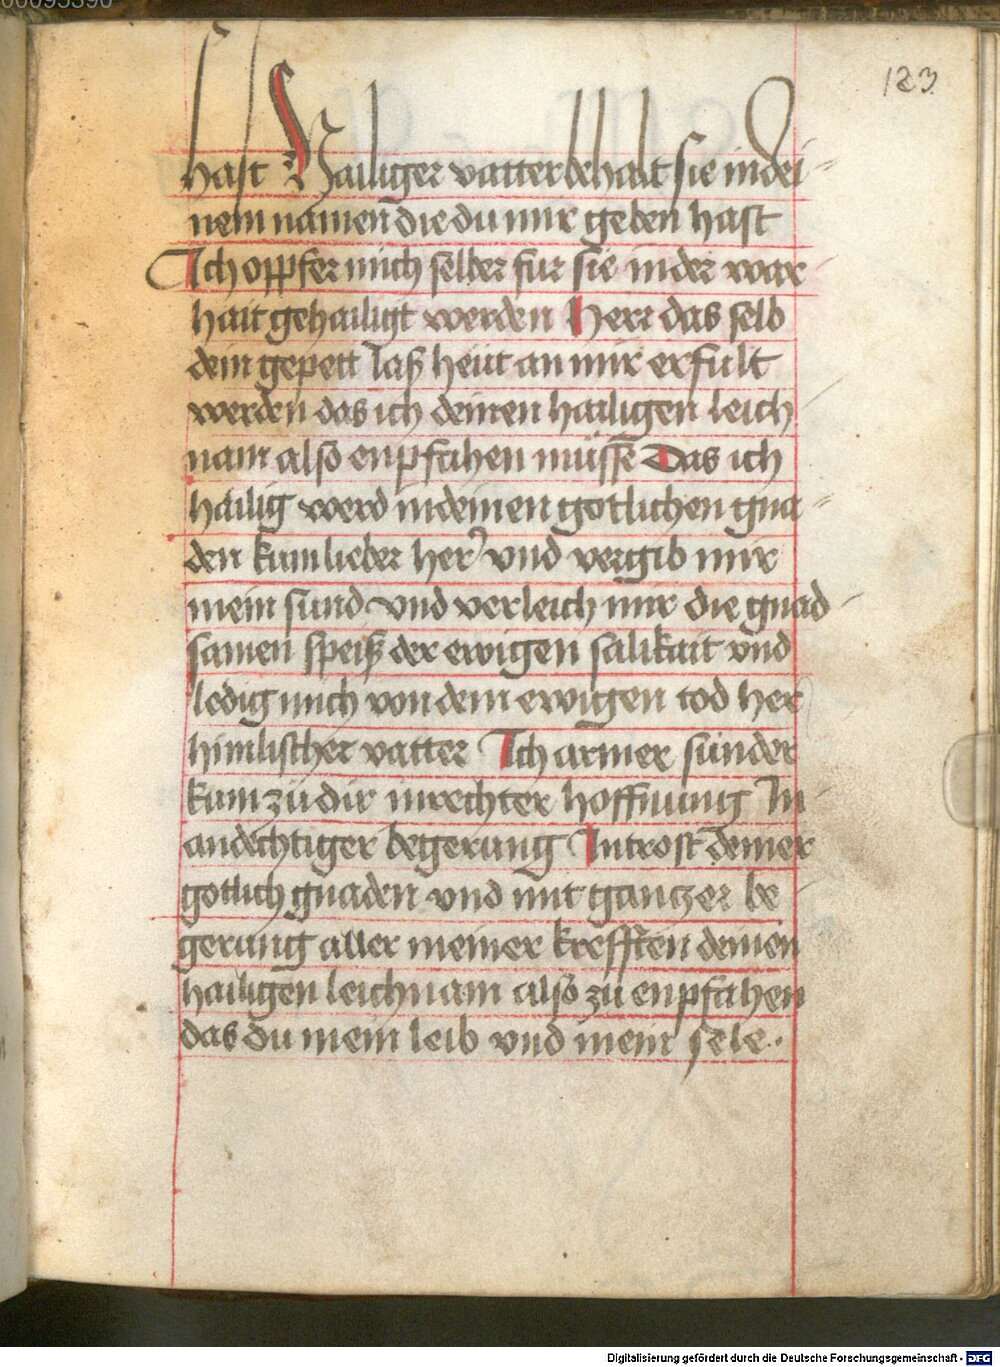 00095390
123
hast Hailiger vatter behalt sie in dei=
nem namen die du mir geben hast
Ich opffer mich selber fur sie in der war
hait gehailigt werden Herr das selb
dein gepett laß heut an mir erfult
werden das ich deinen hailigen leich
nam also enpfahen müsse Das ich
hailig werd in deinen gotlichen gna=
den kum lieber her vnd vergib mir
mein sund vnd verleich mir die gnad
samen speiß der ewigen salikait vnd
ledig mich von dem ewigen tod her
himlischer vatter Ich armer sunder
kum zü dir in rechter hoffnung In
andechtiger begerung In trost deiner
gotlich gnaden vnd mit gantzer be
gerung aller meiner krefften deinen
hailigen leichnam also zu enpfahen
das du mein leib vnd mein sele..
Digitalisierung gefördert durch die Deutsche Forschungsgemeinschaft - DFG